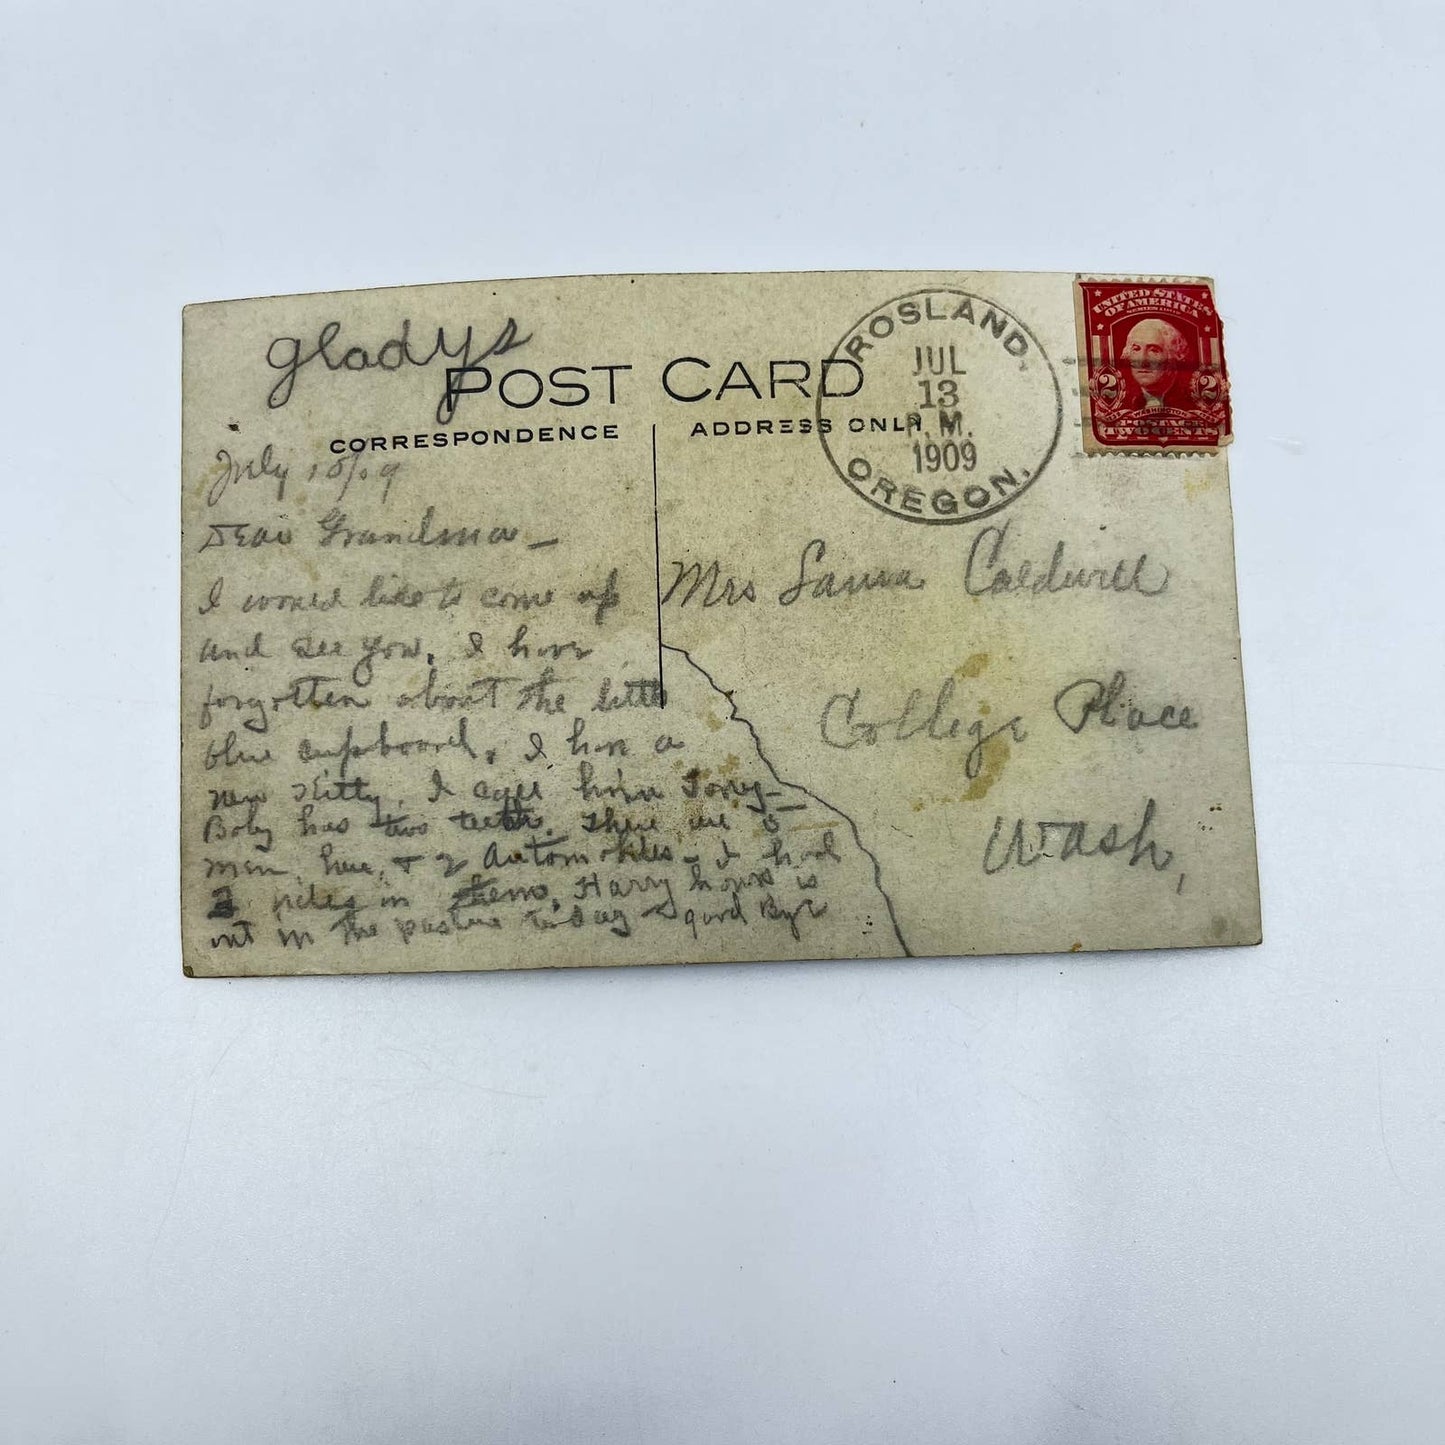 Gladys
POST CARD
CORRESPONDENCE
ADDRESS ONLY
ROSLAND,
JUL
13
P.M.
1909
OREGON.
UNITED STATES
OF AMERICA
SERIES 1902
2 2
WASHINGTON
POSTAGE
TWO CENTS
July
Dear Grandma -
I would like to come up
and see you. I have
forgotten about the little
blue cupboard. I have a
new Kitty. I call him Tony -
Baby has two teeth. There are 8
men here, & 2 Automobiles - I had
2 rides in them. Harry horse is
out in the pasture today - good Bye
Mrs Laura Caldwell
College Place
Wash,